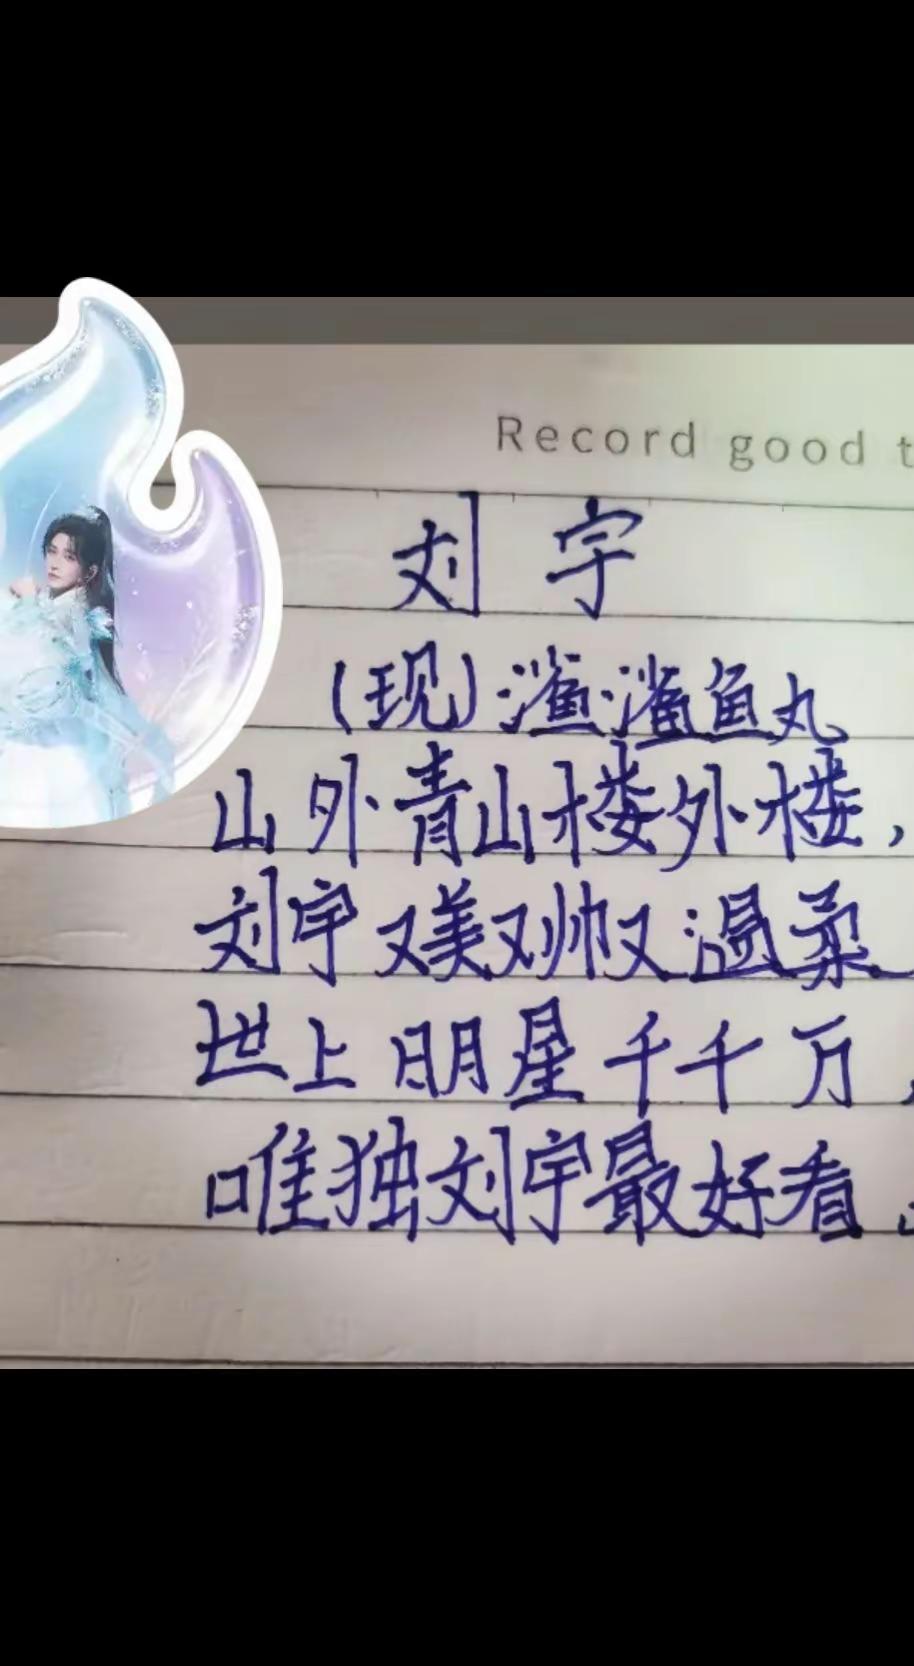 Record good t
刘宇
(现)鲨鲨鱼丸
山外青山楼外楼，
刘宇又美又帅又温柔
世上明星千千万，
唯独刘宇最好看